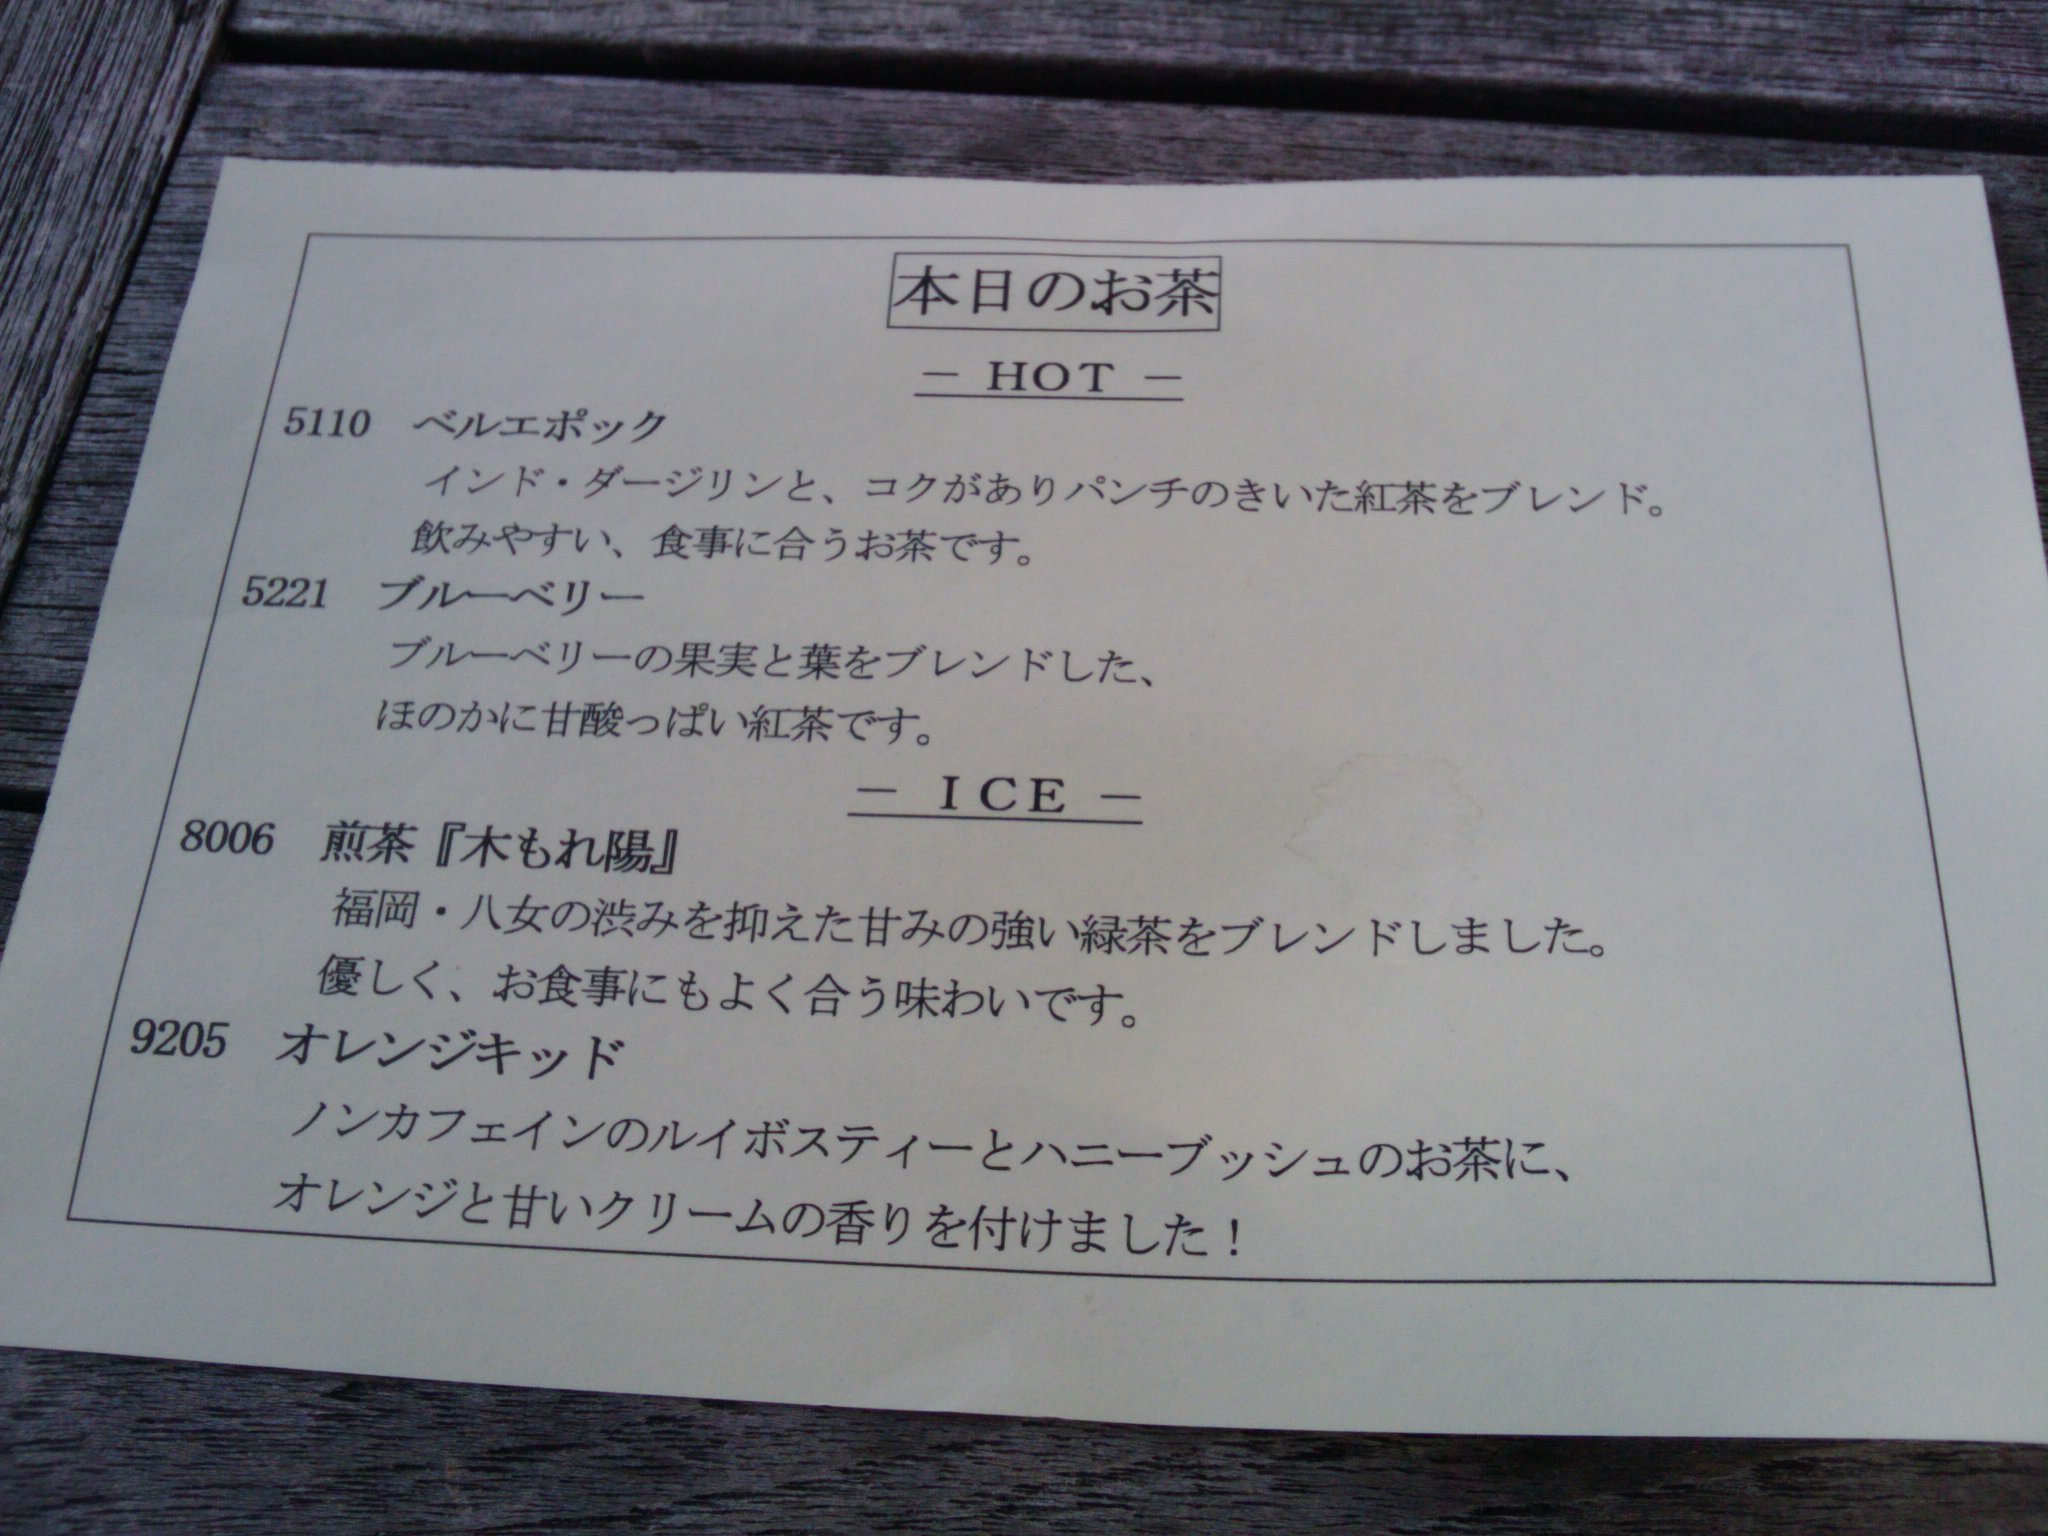 本日のお茶
－ HOT －
5110 ベルエポック
インド・ダージリンと、コクがありパンチのきいた紅茶をブレンド。
飲みやすい、食事に合うお茶です。
5221 ブルーベリー
ブルーベリーの果実と葉をブレンドした、
ほのかに甘酸っぱい紅茶です。
－ ICE －
8006 煎茶『木もれ陽』
福岡・八女の渋みを抑えた甘みの強い緑茶をブレンドしました。
優しく、お食事にもよく合う味わいです。
9205 オレンジキッド
ノンカフェインのルイボスティーとハニーブッシュのお茶に、
オレンジと甘いクリームの香りを付けました！